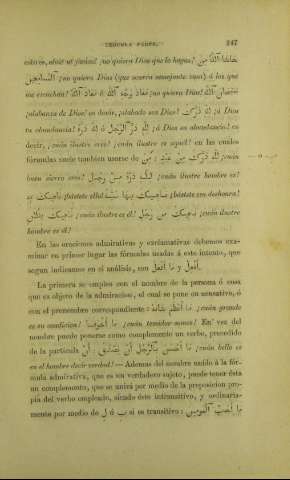 TERCERA PARTE. 247
esto es, absit ut faciam! ¡no quiera Dios que lo hagas! حَاشَا اللّٰهُ مِنْ
¡no quiera Dios (que ocurra semejante cosa) á los que
me escuchan! مَعَاذَ اللّٰه ó مَعَاذَ وَجْه اللّٰه ¡no quiera Dios!
¡alabanza de Dios! es decir, ¡alabado sea Dios! ¡á Dios
tu abundancia! ó لِلّٰهِ دَرُّ الرَّجُلِ ó لِلّٰهِ دَرُّهُ ¡á Dios su abundancia! es
decir, ¡cuán ilustre eres! ¡cuán ilustre es aquel! en las cuales
fórmulas suele tambien usarse de مِنْ; لِلّٰهِ دَرُّكَ مِنْ عَبْدٍ ¡cuán
buen siervo eres! ¡cuán ilustre hombre es!
¡bástete ella! ¡bástete con deshonra!
نَاهِيكَ مِنْ رَجُلٍ ¡cuán ilustre es él! ¡cuán ilustre
hombre es él!
En las oraciones admirativas y exclamativas debemos exa-
minar en primer lugar las fórmulas usadas á este intento, que
segun indicamos en el análisis, son مَا أَفْعَلَ y أَفْعِلْ.
La primera se emplea con el nombre de la persona ó cosa
que es objeto de la admiracion, el cual se pone en acusativo, ó
con el pretendero correspondiente: مَا أَعْظَمَ شَانَهُ ¡cuán grande
es su condicion! ¡cuán temidor somos! En vez del
nombre puede ponerse como complemento un verbo, precedido
de la partícula أَنْ: مَا أَحْسَنَ بِالرَّجُلِ أَنْ يَصْدُقَ ¡cuán bello es
en el hombre decir verdad! — Ademas del nombre unido á la fór-
mula admirativa, que es su verdadero sujeto, puede tener ésta
un complemento, que se unirá por medio de la preposicion pro-
pia del verbo empleado, siendo éste intransitivo, y ordinaria-
mente por medio de لِ ó بِ si es transitivo: